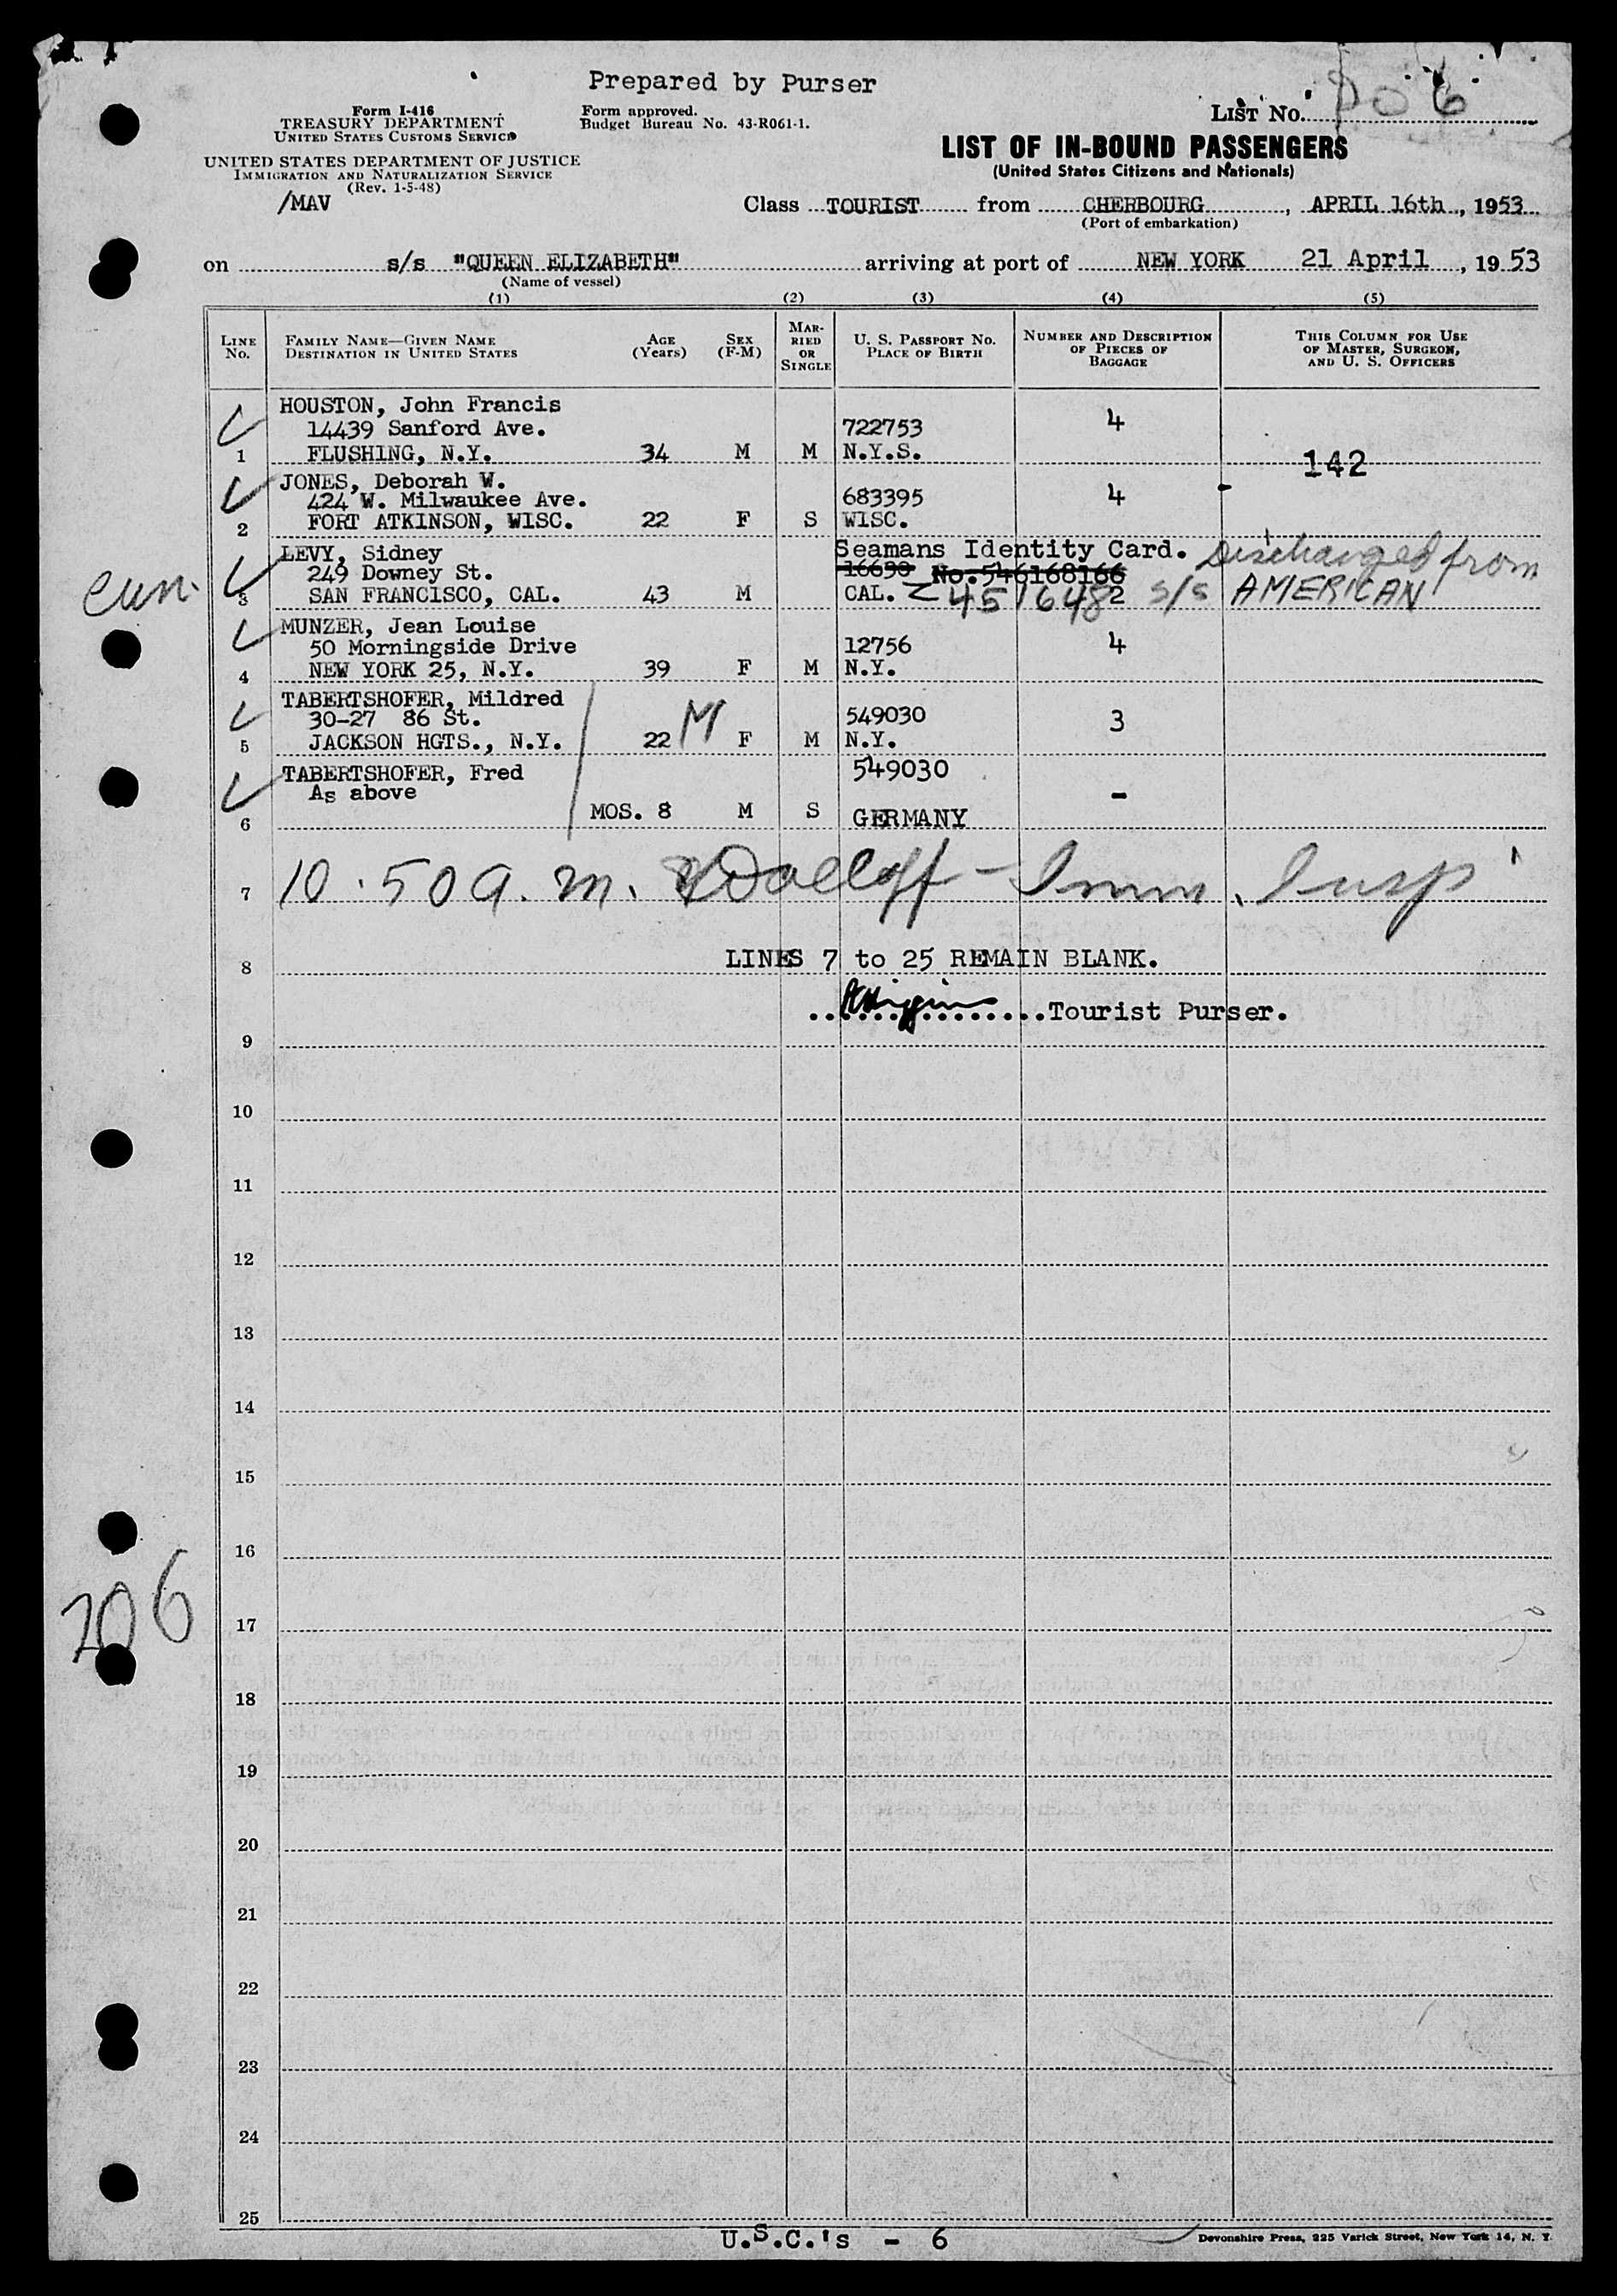 Prepared by Purser
Form I-416
TREASURY DEPARTMENT
UNITED STATES CUSTOMS SERVICE
Form approved.
Budget Bureau No. 43-R061-1.
LIST No.
UNITED STATES DEPARTMENT OF JUSTICE
IMMIGRATION AND NATURALIZATION SERVICE
(Rev. 1-5-48)
/MAV
LIST OF IN-BOUND PASSENGERS
(United States Citizens and Nationals)
Class TOURIST from CHERBOURG, APRIL 16th, 1953
(Port of embarkation)
on s/s "QUEEN ELIZABETH" arriving at port of NEW YORK 21 April, 1953
(Name of vessel)
(1) (2) (3) (4) (5)
LINE No. FAMILY NAME—GIVEN NAME DESTINATION IN UNITED STATES AGE (Years) SEX (F-M) MARRIED OR SINGLE U. S. PASSPORT No. PLACE OF BIRTH NUMBER AND DESCRIPTION OF PIECES OF BAGGAGE THIS COLUMN FOR USE OF MASTER, SURGEON, AND U. S. OFFICERS
HOUSTON, John Francis
14439 Sanford Ave. 722753 4
1 FLUSHING, N.Y. 34 M M N.Y.S. 142
JONES, Deborah W.
424 W. Milwaukee Ave. 683395 4 -
2 FORT ATKINSON, WISC. 22 F S WISC.
LEVY, Sidney Seamans Identity Card. Discharged from
249 Downey St. 16690 No.546168166
3 SAN FRANCISCO, CAL. 43 M CAL. Z 4516482 s/s AMERICAN
MUNZER, Jean Louise
50 Morningside Drive 12756 4
4 NEW YORK 25, N.Y. 39 F M N.Y.
TABERTSHOFER, Mildred
30-27 86 St. M 549030 3
5 JACKSON HGTS., N.Y. 22 F M N.Y.
TABERTSHOFER, Fred 549030
As above -
6 MOS. 8 M S GERMANY
7 10.50 a.m. - Imm. Insp
LINES 7 to 25 REMAIN BLANK.
8
Higgins Tourist Purser.
9
10
11
12
13
14
15
16
206
17
18
19
20
21
22
23
24
25
U.S.C.'s - 6
Devonshire Press, 225 Varick Street, New York 14, N. Y.